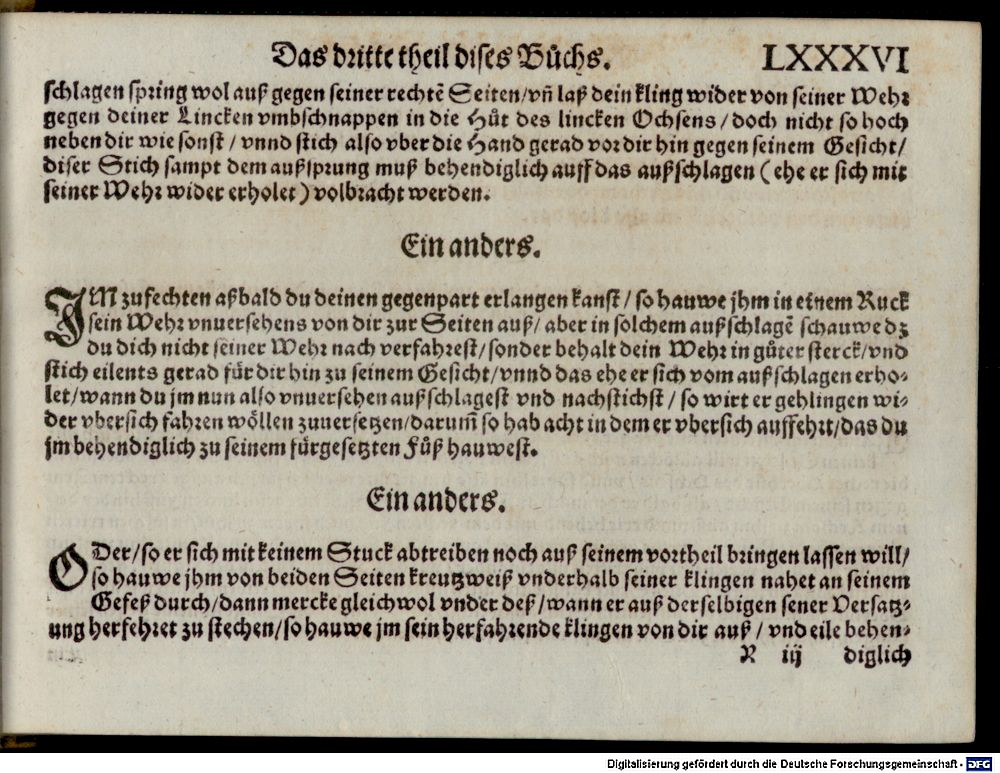 Das dritte theil dises Bůchs. LXXXVI
schlagen spring wol auß gegen seiner rechtẽ Seiten/vñ laß dein kling wider von seiner Wehr
gegen deiner Lincken vmbschnappen in die Hůt des lincken Ochsens/doch nicht so hoch
neben dir wie sonst/vnnd stich also vber die Hand gerad vor dir hin gegen seinem Gesicht/
diser Stich sampt dem außsprung muß behendiglich auff das außschlagen (ehe er sich mit
seiner Wehr wider erholet) volbracht werden.
Ein anders.
IM zufechten aßbald du deinen gegenpart erlangen kanst/so hauwe jhm in einem Ruck
sein Wehr vnuersehens von dir zur Seiten auß/aber in solchem außschlagẽ schauwe dz
du dich nicht seiner Wehr nach verfahrest/sonder behalt dein Wehr in gůter sterck/vnd
stich eilents gerad für dir hin zu seinem Gesicht/vnnd das ehe er sich vom außschlagen erho-
let/wann du jm nun also vnuersehen außschlagest vnd nachstichst/so wirt er gehlingen wi-
der vbersich fahren wöllen zuuersetzen/darum̃ so hab acht in dem er vbersich auffehrt/das du
jm behendiglich zu seinem fürgesetzten Fůß hauwest.
Ein anders.
ODer/so er sich mit keinem Stuck abtreiben noch auß seinem vortheil bringen lassen will/
so hauwe jhm von beiden Seiten kreutzweiß vnderhalb seiner klingen nahet an seinem
Gefeß durch/dann mercke gleichwol vnder deß/wann er auß derselbigen sener Versatz-
ung herfehret zu stechen/so hauwe jm sein herfahrende klingen von dir auß/vnd eile behen-
R iij diglich
Digitalisierung gefördert durch die Deutsche Forschungsgemeinschaft - DFG